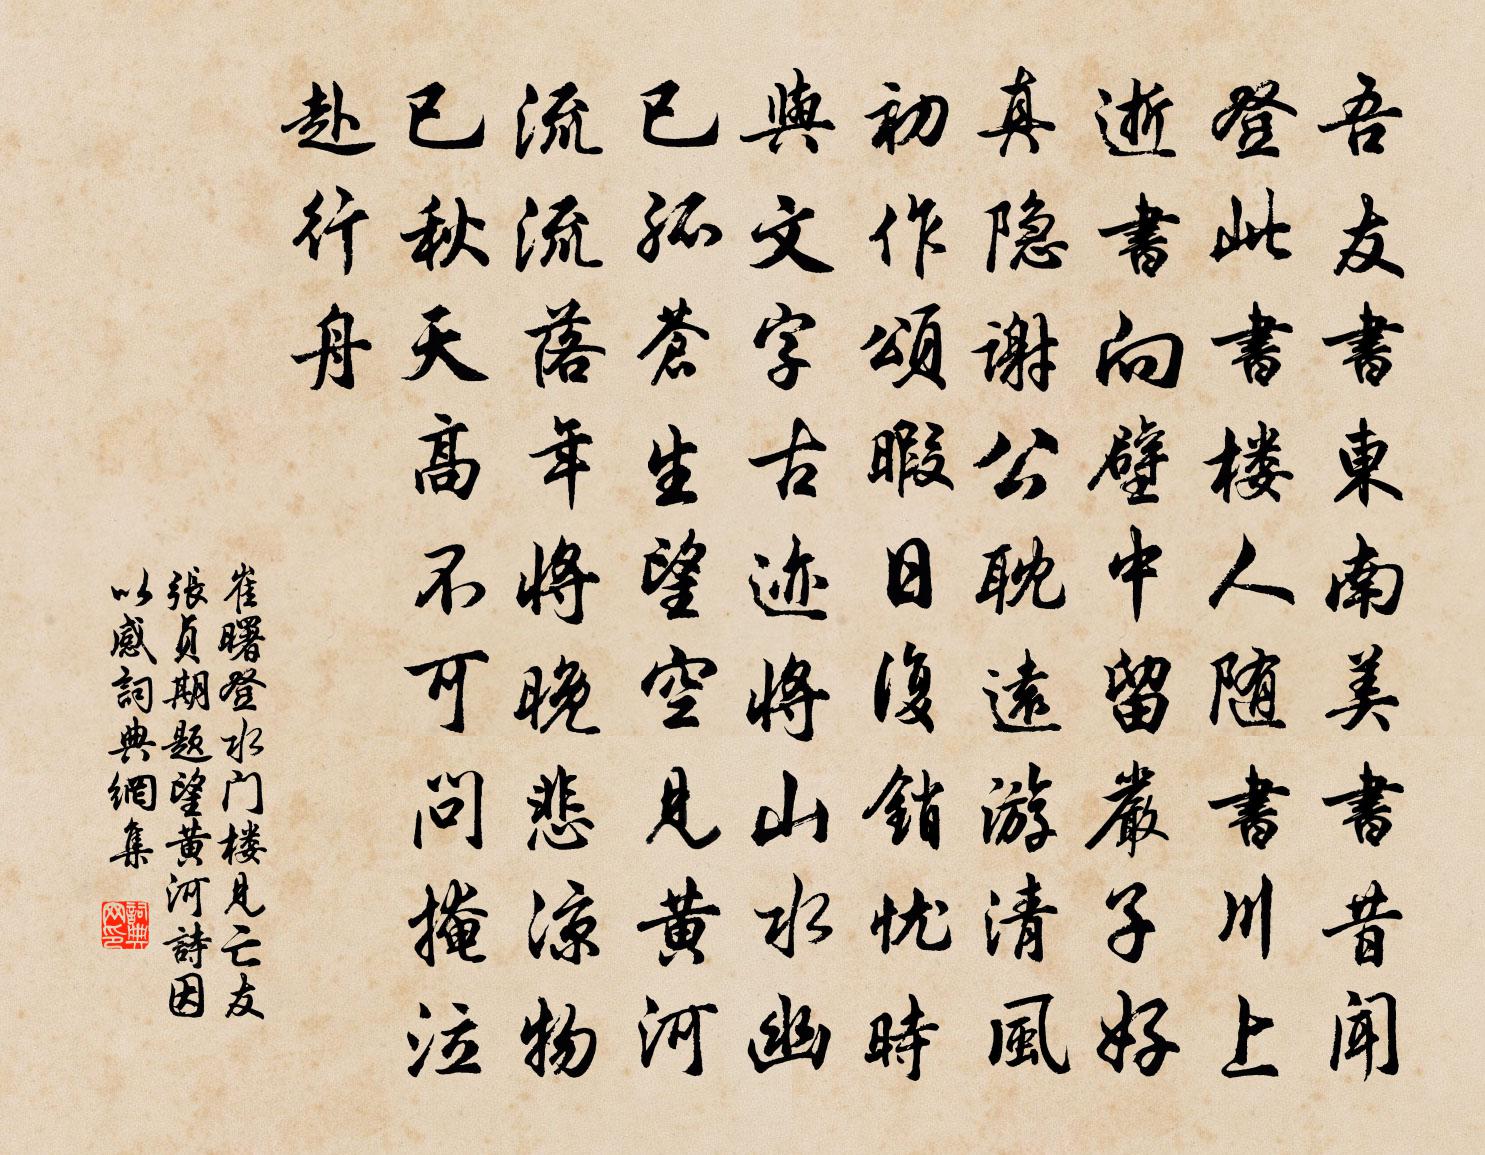 吾友書東南美書昔聞
登此書楼人随書川上
逝書向壁中留嚴子好
真隐謝公耽遠游清風
初作頌暇日復銷忧時
與文字古迹將山水幽
已孤蒼生望空見黄河
流流落年將晚悲凉物
已秋天高不可問掩泣
赴行舟
崔曙登水门楼見亡友
張貞期题望黄河詩因
以感詞典網集
詞典网印